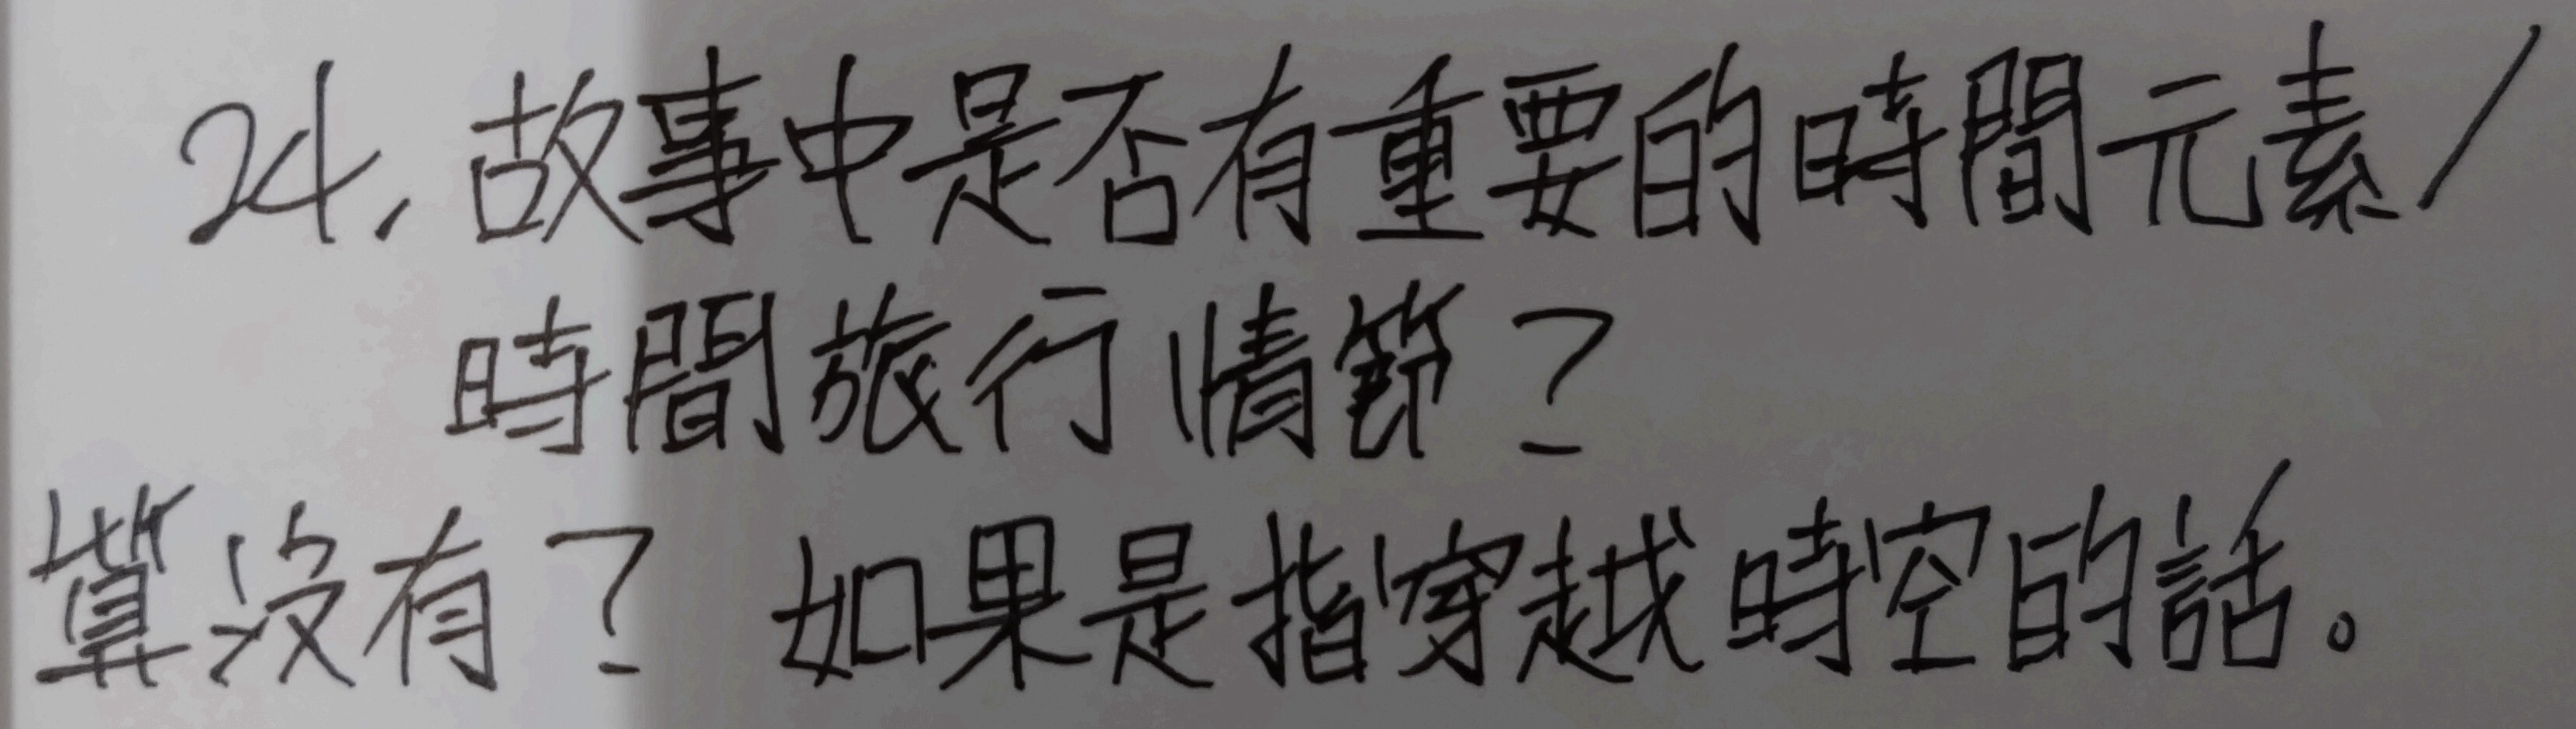 24、故事中是否有重要的時間元素/
時間旅行情節?
算沒有? 如果是指穿越時空的話。